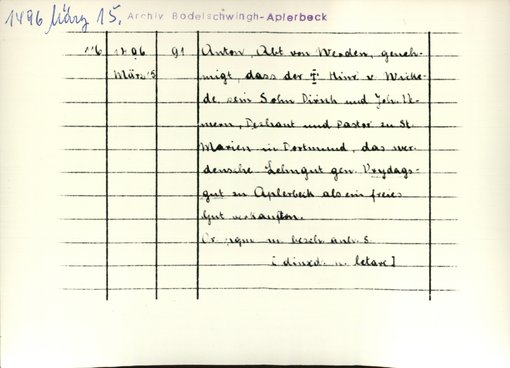 1496 März 15. Archiv Bodelschwingh-Aplerbeck
1496 91 Anton, Abt von Werden, geneh-
März 15 migt, dass der Hinr. v. Wicke-
de, sein Sohn Dirich und Joh.
mern, Dechant und Pastor zu St.
Marien in Dortmund, das wer-
densche Lehngut gen. Vrydags-
gut zu Aplerbeck als ein freies
Gut verkauften.
Or. m. besch. anh. S.
[dinxd. n. letare]